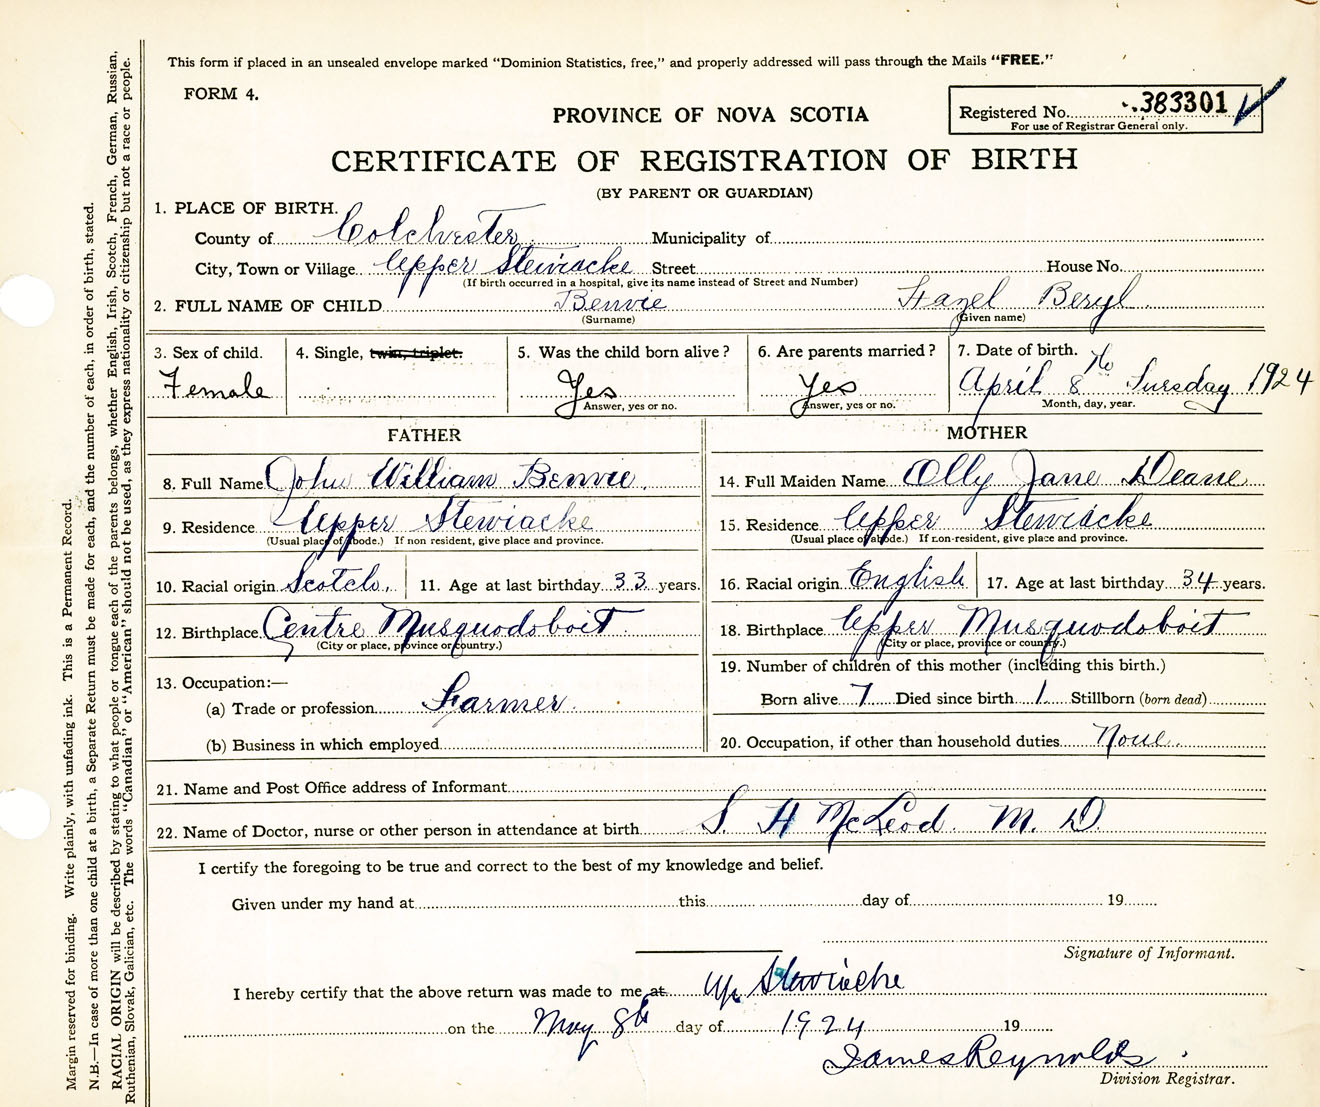 This form if placed in an unsealed envelope marked "Dominion Statistics, free," and properly addressed will pass through the Mails "FREE."
FORM 4.
PROVINCE OF NOVA SCOTIA
Registered No. 383301
For use of Registrar General only.
CERTIFICATE OF REGISTRATION OF BIRTH
(BY PARENT OR GUARDIAN)
1. PLACE OF BIRTH.
County of Colchester Municipality of
City, Town or Village Upper Stewiacke Street House No.
(If birth occurred in a hospital, give its name instead of Street and Number)
2. FULL NAME OF CHILD Benvie Hazel Beryl
(Surname) (Given name)
3. Sex of child. 4. Single, twin, triplet. 5. Was the child born alive? 6. Are parents married? 7. Date of birth.
Female Yes Yes April 8th Tuesday 1924
Answer, yes or no. Answer, yes or no. Month, day, year.
FATHER MOTHER
8. Full Name John William Benvie 14. Full Maiden Name Olly Jane Deane
9. Residence Upper Stewiacke 15. Residence Upper Stewiacke
(Usual place of abode.) If non resident, give place and province. (Usual place of abode.) If non-resident, give place and province.
10. Racial origin Scotch. 11. Age at last birthday 33 years. 16. Racial origin English 17. Age at last birthday 34 years.
12. Birthplace Centre Musquodoboit 18. Birthplace Upper Musquodoboit
(City or place, province or country.) (City or place, province or country.)
19. Number of children of this mother (including this birth.)
13. Occupation:—
Born alive 7 Died since birth 1 Stillborn (born dead)
(a) Trade or profession Farmer.
(b) Business in which employed 20. Occupation, if other than household duties None.
21. Name and Post Office address of Informant
22. Name of Doctor, nurse or other person in attendance at birth S. H McLeod. M. D.
I certify the foregoing to be true and correct to the best of my knowledge and belief.
Given under my hand at this day of 19
Signature of Informant.
I hereby certify that the above return was made to me at Up Stewiacke
on the May 8th day of 1924 19
James Reynolds
Division Registrar.
Margin reserved for binding. Write plainly, with unfading ink. This is a Permanent Record.
N.B.—In case of more than one child at a birth, a Separate Return must be made for each, and the number of each, in order of birth, stated.
RACIAL ORIGIN will be described by stating to what people or tongue each of the parents belongs, whether English, Irish, Scotch, French, German, Russian,
Ruthenian, Slovak, Galician, etc. The words "Canadian" or "American" should not be used, as they express nationality or citizenship but not a race or people.